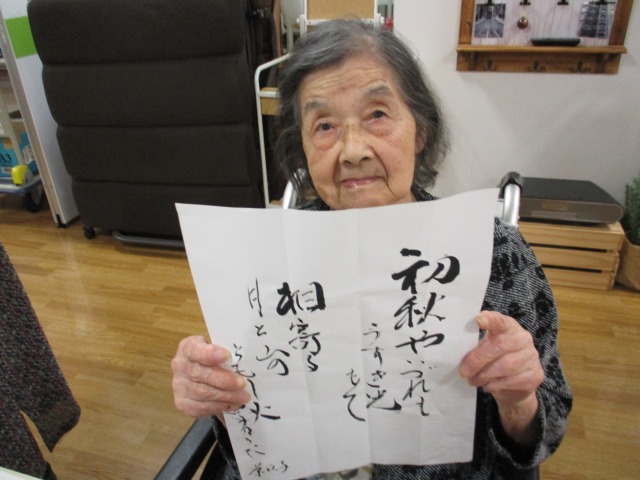 初秋やいづれも
うすき光もて
相寄る
月と
ともし火